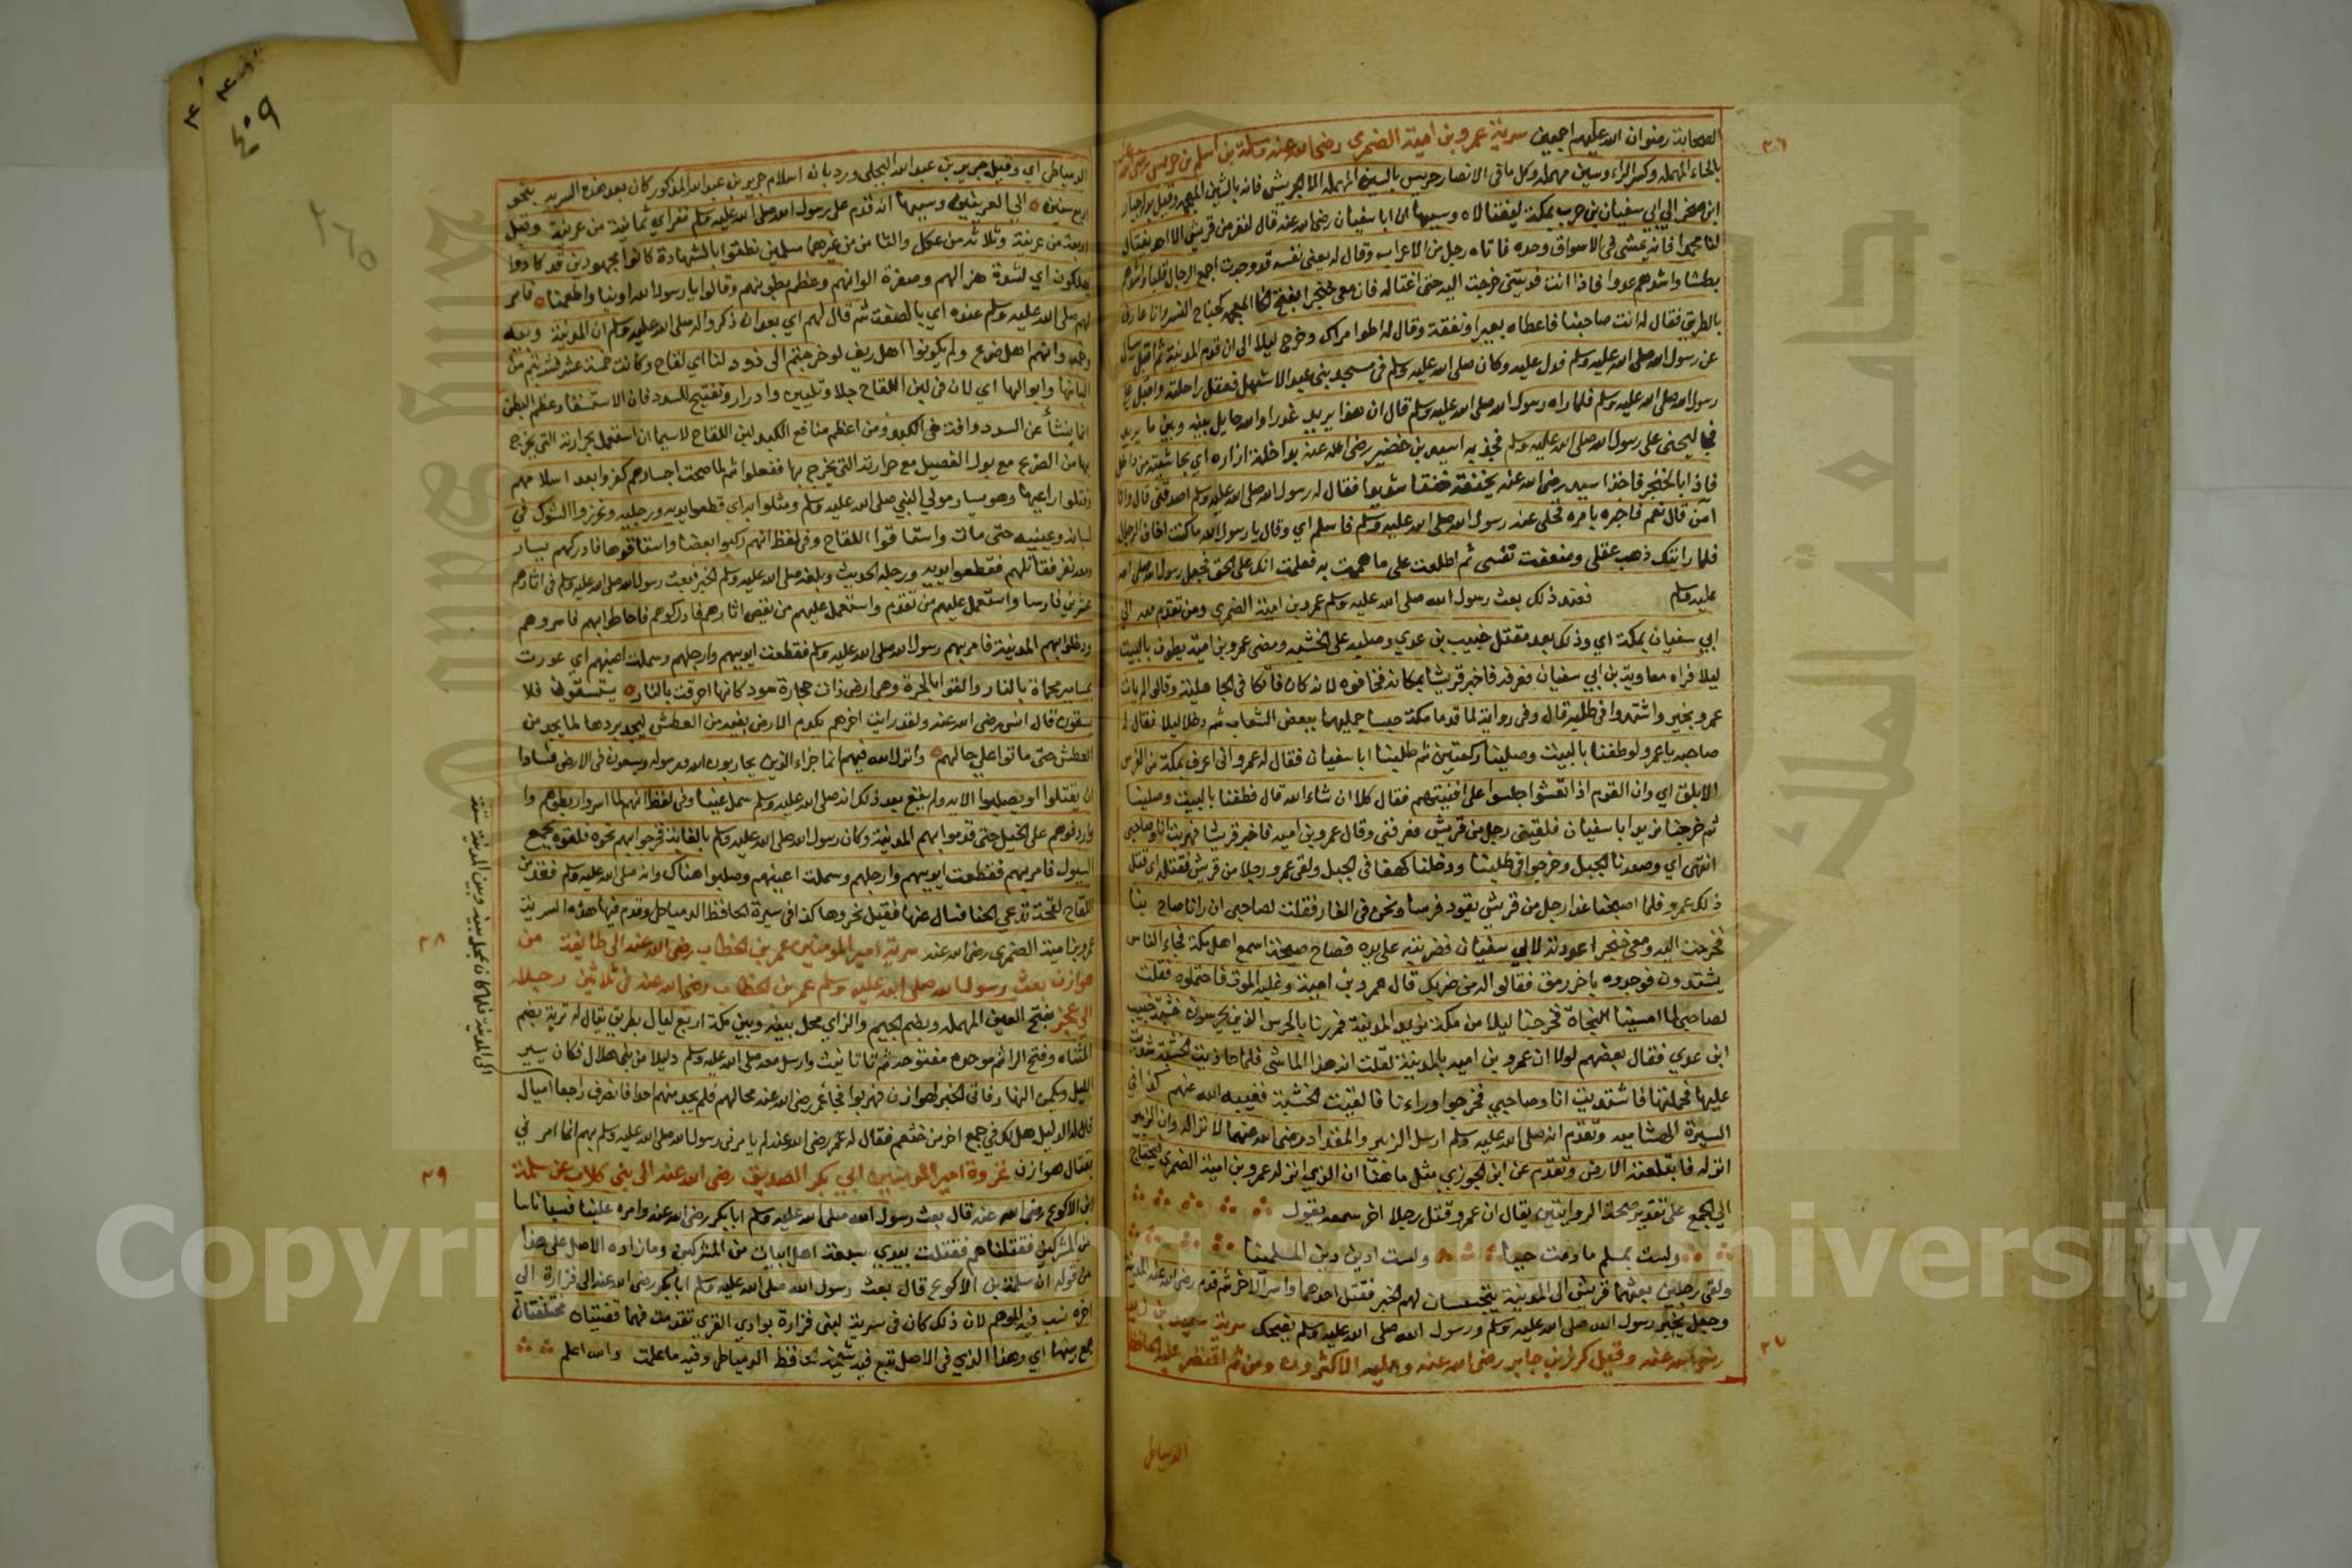 الصحابة رضوان الله عليهم اجمعين سرية عمرو بن امية الضمرى رضي الله عنه وسلمة بن اسلم بن حريس
بالحاء المهملة وكسر الراء وسين مهملة وكل ما في الانصار حريس بالسين المهملة الا الحريش فانه بالشين المعجمة وقيل بدله جبار
ابن صخر الى ابي سفيان بن حرب بمكة ليغتالاه وسببها ان ابا سفيان رضي الله عنه قال لنفر من قريش الا احد يغتال
لنا محمدا فانه يمشى فى الاسواق وحده فاتاه رجل من الاعراب وقال له يعنى نفسه قد وجدت اجمع الرجال قلبا واشدهم
بطشا واشدهم عدوا فاذا انت قويتنى خرجت اليه حتى اغتاله فان معى خنجرا بفتح الخا المعجمة كجناح النسر وانا عارف
بالطريق فقال له انت صاحبنا فاعطاه بعيرا ونفقة وقال له اطو امرك وخرج ليلا الى ان قدم المدينة ثم اقبل يسال
عن رسول الله صلى الله عليه وسلم فدل عليه وكان صلى الله عليه وسلم فى مسجد بنى عبد الاشهل فعقل راحلته واقبل على
رسول الله صلى الله عليه وسلم فلما راه رسول الله صلى الله عليه وسلم قال ان هذا يريد غدرا والله حايل بينه وبين ما يريد
فجا ليحنى على رسول الله صلى الله عليه وسلم فجذبه اسيد بن حضير رضى الله عنه بداخلة ازاره اي بحاشيته من داخل
فاذا بالخنجر فاخذ اسيد رضى الله عنه يخنقه خنقا شديدا فقال له رسول الله صلى الله عليه وسلم اصدقنى قال وانا
آمن قال نعم فاخبره بامره فخلى عنه رسول الله صلى الله عليه وسلم فاسلم اي وقال يا رسول الله ما كنت اخاف الرجال
فلما رايتك ذهب عقلى وضعفت نفسى ثم اطلعت على ما هممت به فعلمت انك على الحق فجعل رسول الله صلى الله
عليه وسلم فعند ذلك بعث رسول الله صلى الله عليه وسلم عمرو بن امية الضمري ومن تقدم معه الى
ابي سفيان بمكة اي وذلك بعد مقتل خبيب بن عدي وصلبه على الخشبة ومضى عمرو بن امية يطوف بالبيت
ليلا فراه معاوية بن ابي سفيان فعرفه فاخبر قريشا بمكانه فخافوه لانه كان فاتكا فى الجاهلية وقالوا لم يات
عمرو بخير واشتدوا فى طلبه قال وفى رواية لما قدما مكة حبسا جمليهما ببعض الشعاب ثم دخلا ليلا فقال له
صاحبه يا عمرو لو طفنا بالبيت وصلينا ركعتين ثم طلبنا ابا سفيان فقال له عمرو انى اعرف بمكة من الفرس
الابلق اي وان القوم اذا تعشوا جلسوا على افنيتهم فقال كلا ان شاء الله قال فطفنا بالبيت وصلينا
ثم خرجنا نريد ابا سفيان فلقينى رجل من قريش فعرفنى وقال عمرو بن امية فاخبر قريشا فهربت انا وصاحبى
انتهى اي وصعدنا الجبل وخرجوا فى طلبنا ودخلنا كهفا فى الجبل ولقى عمرو رجلا من قريش فقتله اي قتل
ذلك عمرو فلما اصبحنا غدا رجل من قريش يقود فرسا ونحن فى الغار فقلت لصاحبى ان رانا صاح بنا
فخرجت اليه ومعى خنجرا عددته لابي سفيان فضربته على يده فصاح صيحة اسمع اهل مكة فجاء الناس
يشتدون فوجدوه باخر رمق فقالوا له من ضربك قال عمرو بن امية وغلبه الموت فاحتملوه فقلت
لصاحبى لما امسينا النجاة فخرجنا ليلا من مكة نريد المدينة فمررنا بالحرس الذين يحرسون خشبة خبيب
ابن عدي فقال بعضهم لولا ان عمرو بن امية بالمدينة لقلت انه هذا الماشى فلما حاذيت الخشبة شددت
عليها فحملتها فاشتديت انا وصاحبى فخرجوا وراءنا فالقيت الخشبة فغيبه الله عنهم كذا فى
السيرة الهشامية وتقدم انه صلى الله عليه وسلم ارسل الزبير والمقداد رضى الله عنهما لانزاله وان الزبير
انزله فابتلعته الارض وتقدم عن ابن الجوزي مثل ما هنا ان الذي انزله عمرو بن امية الضمري فيحتاج
الى الجمع على تقدير صحة الروايتين يقال ان عمرو قتل رجلا اخر سمعه يقول
ولست بمسلم ما دمت حيا ولست ادين دين المسلمينا
ولقى رجلين بعثهما قريش الى المدينة يتجسسان لهم الخبر فقتل احدهما واسر الاخر ثم قدم رضي الله عنه المدينة
وجعل يخبر رسول الله صلى الله عليه وسلم ورسول الله صلى الله عليه وسلم يضحك سرية سعيد بن زيد
رضى الله عنه وقيل كرز بن جابر رضى الله عنه وعليه الاكثرون ومن ثم اقتصر عليه الحافظ
الدمياطى
٢٦
٢٧
الدمياطى اي وقيل جرير بن عبد الله البجلى ورد بان اسلام جرير بن عبد الله المذكور كان بعد هذه السرية بنحو
اربع سنين الى العرنيين وسببها انه قدم على رسول الله صلى الله عليه وسلم نفر اي ثمانية من عرينة وقيل
اربعة من عرينة وثلاثة من عكل والثامن من غيرهما مسلمين نطقوا بالشهادة كانوا مجهودين قد كادوا
يهلكون اي لشدة هزالهم وصفرة الوانهم وعظم بطونهم وقالوا يا رسول الله اونا واطعمنا فامر
لهم صلى الله عليه وسلم عنده اي بالصفة ثم قال لهم اي بعد ان ذكروا له صلى الله عليه وسلم ان المدينة وبئه
وخمه وانهم اهل ضرع ولم يكونوا اهل ريف لو خرجتم الى ذود لنا اي لقاح وكانت خمسة عشر فشربتم من
البانها وابوالها اي لان فى لبن اللقاح جلا وتليين وادرار وتفتيح للسدد فان الاستسقا وعظم البطن
انما ينشأ عن السدد وافة فى الكبد ومن اعظم منافع الكبد لبن اللقاح لاسيما ان استعمل بحرارته التى يخرج
بها من الضرع مع بول الفصيل مع حرارته التى يخرج بها ففعلوا ثم لما صحت اجسادهم كفروا بعد اسلامهم
وقتلوا راعيها وهو يسار مولى النبى صلى الله عليه وسلم ومثلوا به اي قطعوا يديه ورجليه وغرزوا الشوك فى
لسانه وعينيه حتى مات واستاقوا اللقاح وفى لفظ انهم ركبوا بعضها واستاقوها فادركهم يسار
ومعه نفر فقاتلهم فقطعوا يديه ورجليه الحديث وبلغه صلى الله عليه وسلم الخبر فبعث رسول الله صلى الله عليه وسلم فى اثارهم
عشرين فارسا واستعمل عليهم من تقدم واستعمل عليهم من يقص اثارهم فادركوهم فاحاطوا بهم فاسروهم
ودخلوا بهم المدينة فامر بهم رسول الله صلى الله عليه وسلم فقطعت ايديهم وارجلهم وسملت اعينهم اي عورت
بمسامير محماة بالنار والقوا بالحرة وهى ارض ذات حجارة سود كانها احرقت بالنار يستسقون فلا
يسقون قال انس رضى الله عنه ولقد رايت احدهم يكدم الارض بفيه من العطش ليجد بردها لما يجد من
العطش حتى ماتوا على حالهم وانزل الله فيهم انما جزاء الذين يحاربون الله ورسوله ويسعون فى الارض فسادا
ان يقتلوا او يصلبوا الاية ولم يقع بعد ذلك انه صلى الله عليه وسلم سمل عينا وفى لفظ انهم لما اسروا ربطوهم وا
واردفوهم على الخيل حتى قدموا بهم المدينة وكان رسول الله صلى الله عليه وسلم بالغابة فخرجوا بهم نحوه فلقوه بمجمع
السيول فامر بهم فقطعت ايديهم وارجلهم وسملت اعينهم وصلبوا هناك وانه صلى الله عليه وسلم فقد من
اللقاح لقحة تدعى الحنا فسال عنها فقيل نحروها كذا فى سيرة الحافظ الدمياطى وقدم فيها هذه السرية
عمرو بن امية الضمرى رضى الله عنه سرية امير المومنين عمر بن الخطاب رضى الله عنه الى طايفة من
هوازن بعث رسول الله صلى الله عليه وسلم عمر بن الخطاب رضى الله عنه فى ثلاثين رجلا
الى عجز بفتح العين المهملة وبضم الجيم والزاي محل بينه وبين مكة اربع ليال بطريق يقال له تربة بضم
المثناه وفتح الراء ثم موحده مفتوحه ثم تا تانيث وارسل معه صلى الله عليه وسلم دليلا من بنى هلال فكان يسير
الليل ويكمن النهار فاتى الخبر لهوازن فهربوا فجا عمر رضى الله عنه محالهم فلم يجد منهم احدا فانصرف راجعا
الى المدينة فلما كان بمحل بينه وبين المدينة ستة
اميال
قال له الدليل هل لك فى جمع اخر من خثعم فقال له عمر رضى الله عنه لم يامرنى رسول الله صلى الله عليه وسلم بهم انما امر نى
بقتال هوازن غزوة امير المومنين ابي بكر الصديق رضى الله عنه الى بنى كلاب عن سلمة
ابن الاكوع رضى الله عنه قال بعث رسول الله صلى الله عليه وسلم ابا بكر رضى الله عنه وامره علينا فسبا ناسا
من المشركين فقتلناهم فقتلت بيدي سبعة اهل ابيات من المشركين وما زاده الاصل على هذا
من قوله ان سلمة بن الاكوع قال بعث رسول الله صلى الله عليه وسلم ابا بكر رضى الله عنه الى فزارة الى
اخره نسب فيه للوهم لان ذلك كان فى سرية لبنى فزارة بوادي القرى تقدمت فهما قضيتان مختلفتان
جمع بينهما اي وهذا الذي فى الاصل تبع فيه شيخه الحافظ الدمياطى وفيه ما علمت والله اعلم
٢٨
٢٩
٤٠٩